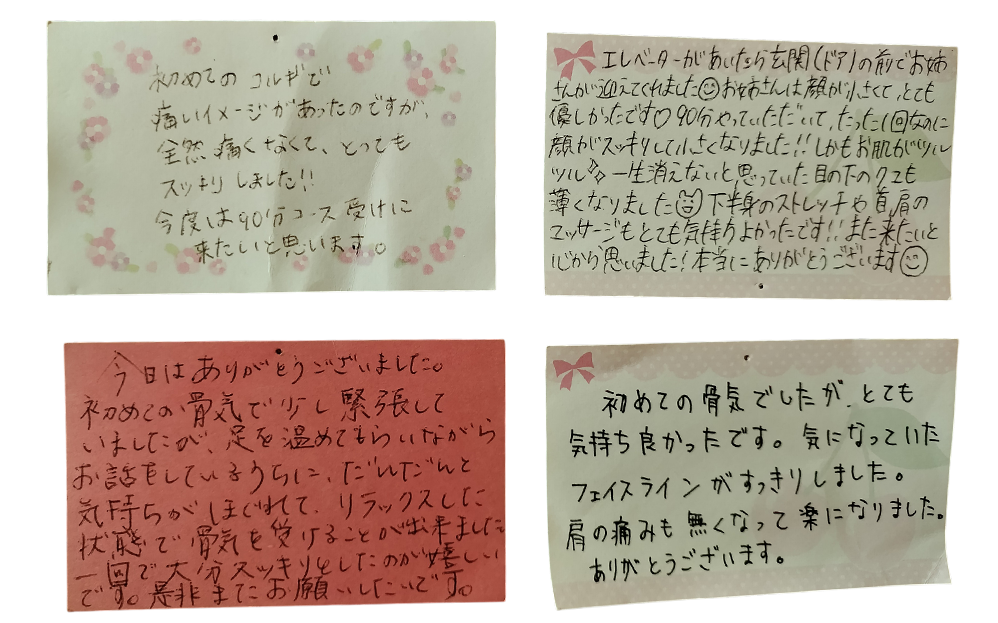 初めてのコルギで
痛いイメージがあったのですが、
全然痛くなくて、とっても
スッキリしました!!
今度は90分コース受けに
来たいと思います。
エレベーターがあいたら玄関(ドア)の前でお姉
さんが迎えてくれました☺お姉さんは顔が小さくて、とても
優しかったです♡90分やっていただいて、たった1回なのに
顔がスッキリして小さくなりました!!しかもお肌がツル
ツル✨一生消えないと思っていた目の下のクマも
薄くなりました☺下半身のストレッチや首、肩の
マッサージもとても気持りよかったです!!また来たいと
心から思いました!本当にありがとうございます☺
今日はありがとうございました。
初めての骨気で少し緊張して
いましたが、足を温めてもらいながら
お話をしているうちに、だんだんと
気持ちがほぐれて、リラックスした
状態で骨気を受けることが出来ました
一回で大分スッキリしたのが嬉しい
です。是非またお願いしたいです。
初めての骨気でしたが、とても
気持ち良かったです。気になっていた
フェイスラインがすっきりしました。
肩の痛みも無くなって楽になりました。
ありがとうございます。